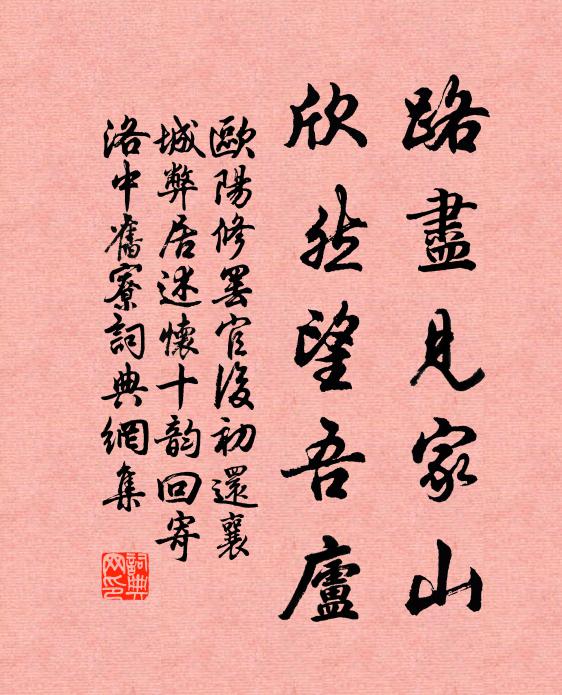 路盡見家山
欣然望吾廬
歐陽修罷官後初還襄
城弊居述懷十韵回寄
洛中舊寮詞典網集
詞典
网印